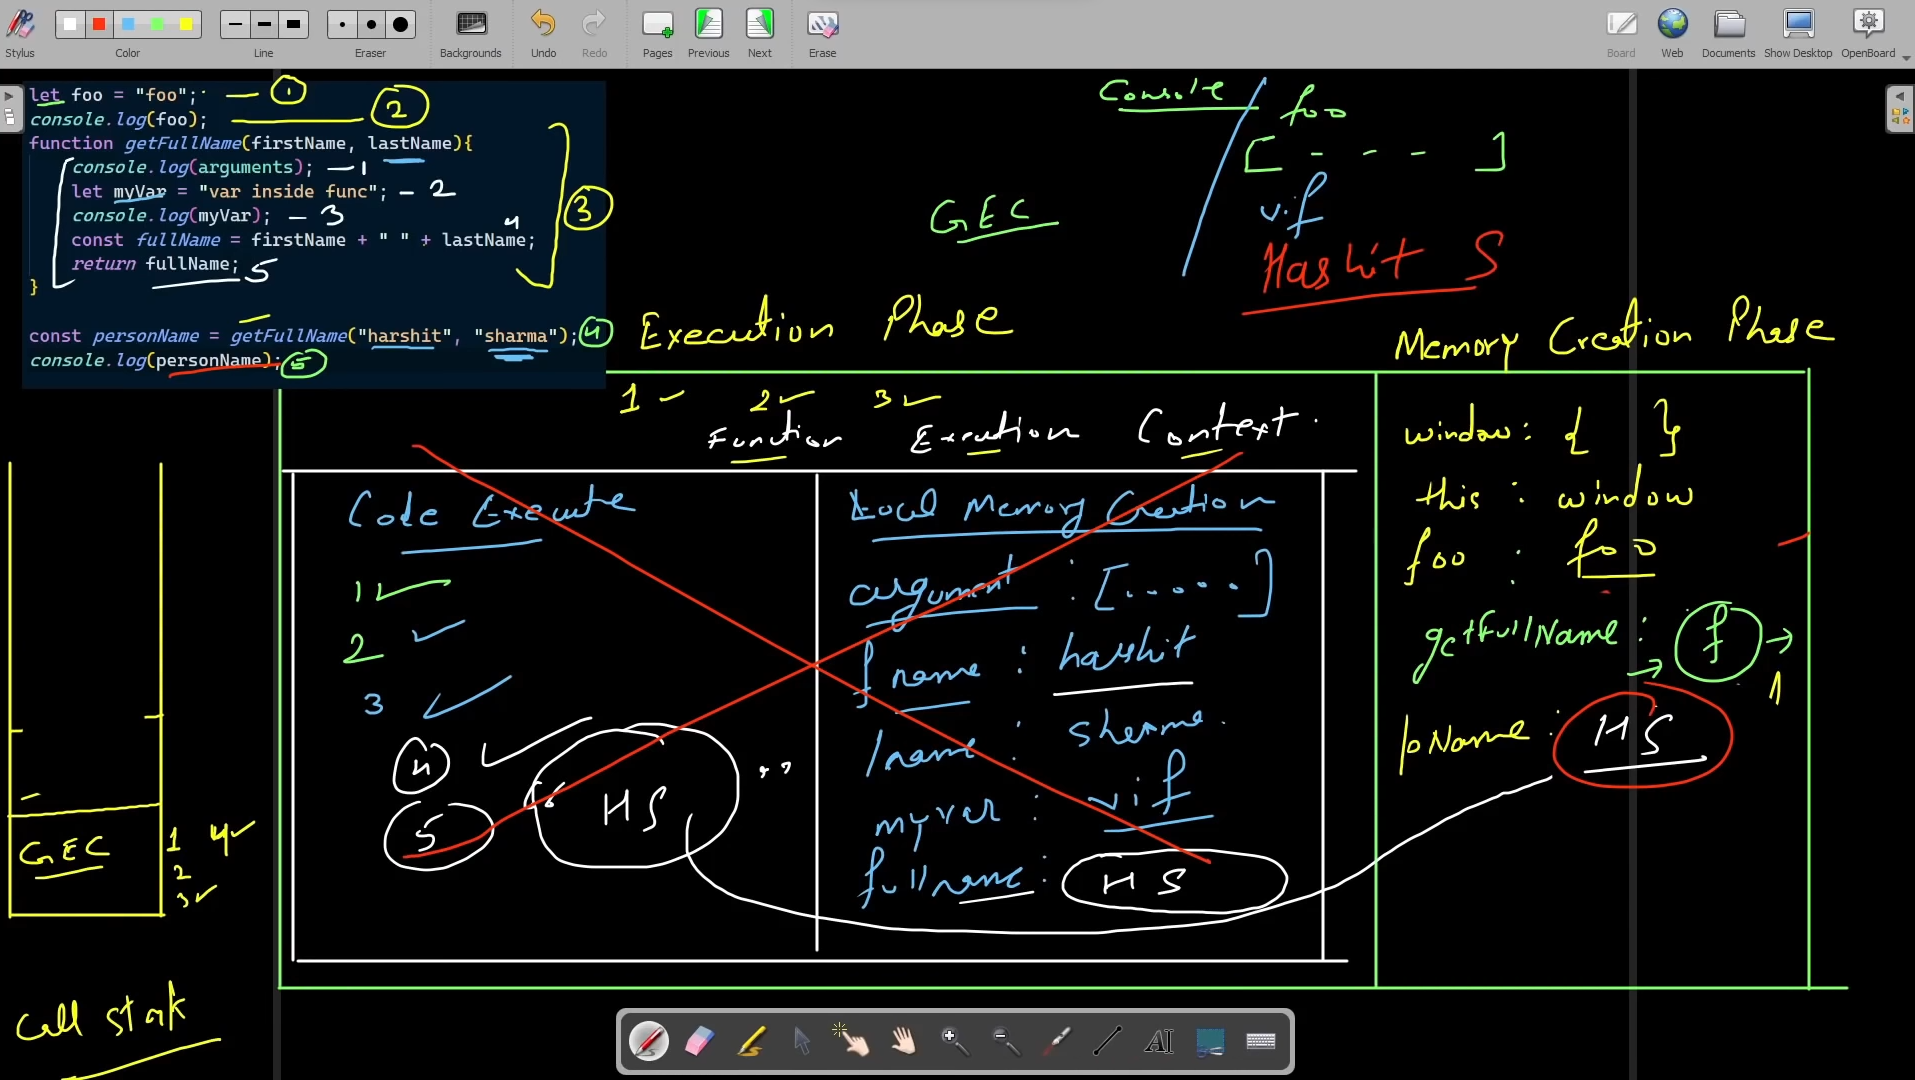 Stylus Color Line Eraser Backgrounds Undo Redo Pages Previous Next Erase Board Web Documents Show Desktop OpenBoard
let foo = "foo"; 1
console.log(foo); 2
function getFullName(firstName, lastName){
console.log(arguments); - 1
let myVar = "var inside func"; - 2
console.log(myVar); - 3
const fullName = firstName + " " + lastName; 4
return fullName; 5
} 3
const personName = getFullName("harshit", "sharma"); 4
console.log(personName); 5
Console
foo
[ - - - ]
vif
Harshit S
GEC
Execution Phase
Memory Creation Phase
1 2 3
Function Execution Context.
Code Execute
1
2
3
4
5 " HS "
Local Memory Creation
argument : [.....]
fname : harshit
lname : sharma
myvar : vif
fullname : HS
window : { }
this : window
foo : foo
getFullName : f
1
pName : HS
GEC 1 4
2
3
Call stak
AI